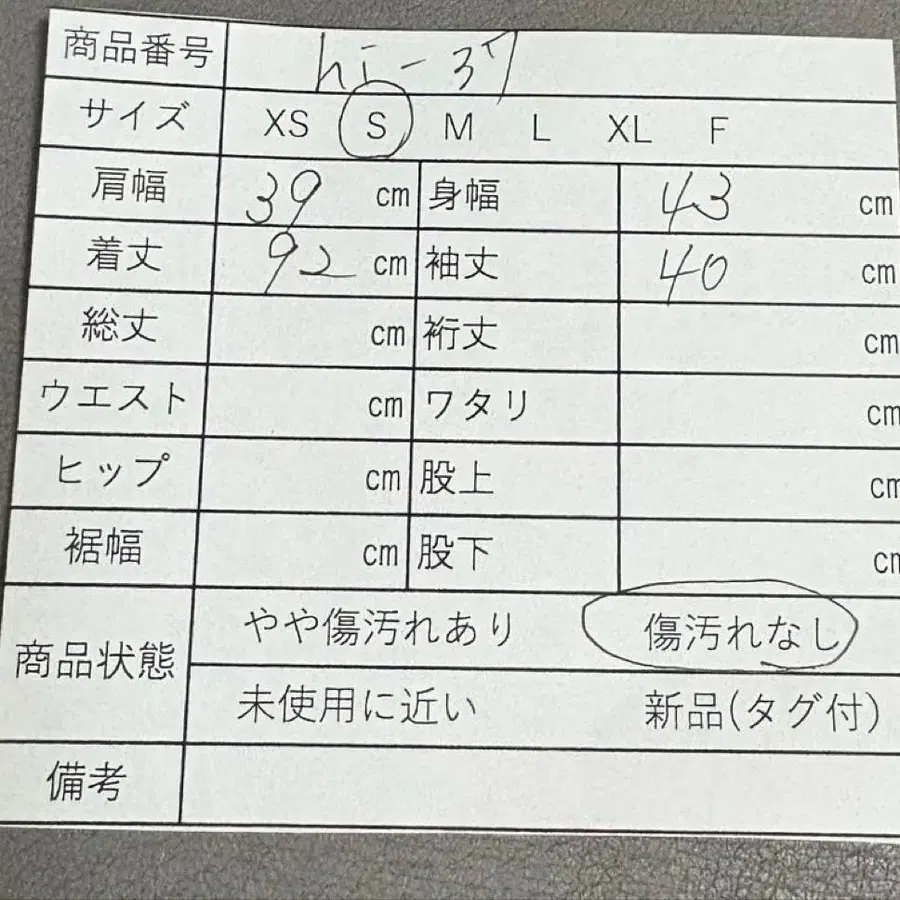 商品番号 hi-37
サイズ XS S M L XL F
肩幅 39 cm 身幅 43 cm
着丈 92 cm 袖丈 40 cm
総丈 cm 裄丈 cm
ウエスト cm ワタリ cm
ヒップ cm 股上 cm
裾幅 cm 股下 cm
商品状態 やや傷汚れあり 傷汚れなし
未使用に近い 新品(タグ付)
備考